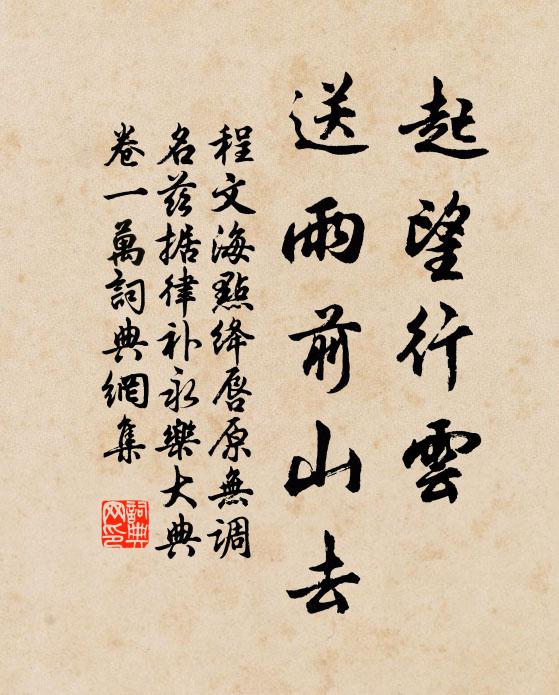 起望行雲
送雨前山去
程文海點绛唇原無調
名兹据律补永樂大典
卷一萬詞典網集
詞典
网印